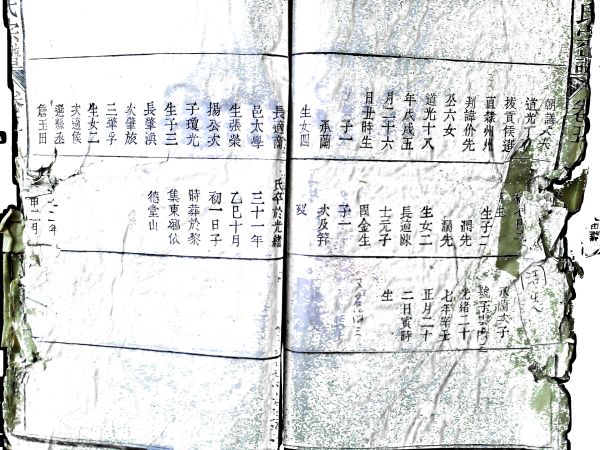 氏宗譜
朝議大夫
道光丁
拔貢候選
直隸州州
判諱价先
丞六女
道光十八
年戊戌五
月二十六
日丑時生
子一
承蘭
生女四
生子二
潤先
生女二
長適陳
士元子
國金生
子一
次及笄
歿
承蘭次子
號子
光緒二十
七年辛丑
正月二十
二日寅時
生
長適蕭
邑太學
生張榮
揚公次
子瓊光
生子三
長肇濱
次肇旅
三肇孚
生女二
次適候
選縣丞
詹玉田
氏卒於光緒
三十一年
乙巳十月
初一日子
時葬於黎
集東鄉依
德堂山
氏宗譜